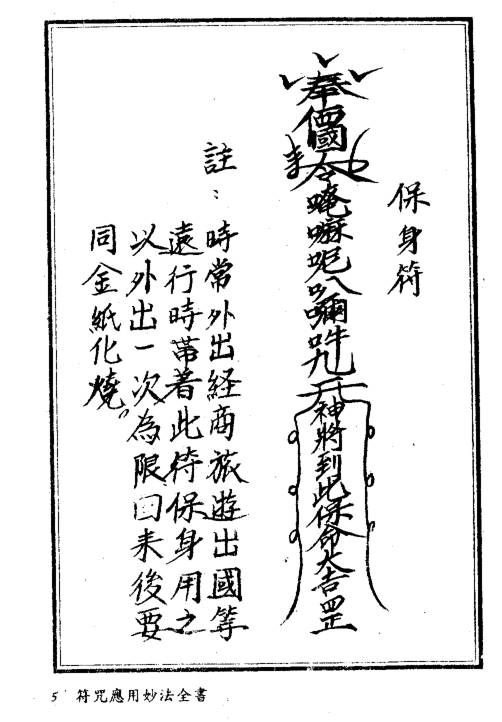 保身符
奉
令唵嘛呢八囉吽
神將到此保命大吉罡
註：
時常外出経商旅遊出國等
遠行時帯著此符保身用之
以外出一次為限回来後要
同金紙化燒〃
5 符咒應用妙法全書